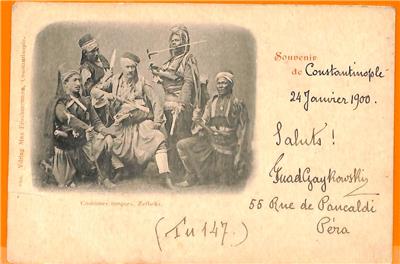 Souvenir
de Constantinople
24 Janvier 1900.
Saluts!
55 Rue de Pancaldi
Péra
Costumes turques, Zeïbeks.
(Tu 147.)
Verlag Max Fruchtermann, Constantinople.